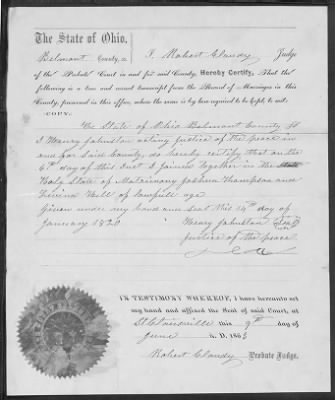 The State of Ohio,
Belmont County, ss. I, Robert Clandy Judge
of the Probate Court in and for said County, Hereby Certify, That the
following is a true and exact transcript from the Record of Marriages in this
County, preserved in this office, where the same is by law required to be kept, to wit:
COPY.
The State of Ohio Belmont County ss
I Henry Johnston acting Justice of the peace in
and for said County do hereby certify that on the
6th day of this Inst I joined together in the State
Holy State of Matrimony Joshua Thompson and
Hill of lawfull age
Given under my hand and seal this 14th day of
January 1820 Henry Johnston
Justice of the peace
IN TESTIMONY WHEREOF, I have hereunto set
my hand and affixed the Seal of said Court, at
St Clairsville this 9th day of
June A. D. 1863
Robert Clandy Probate Judge.